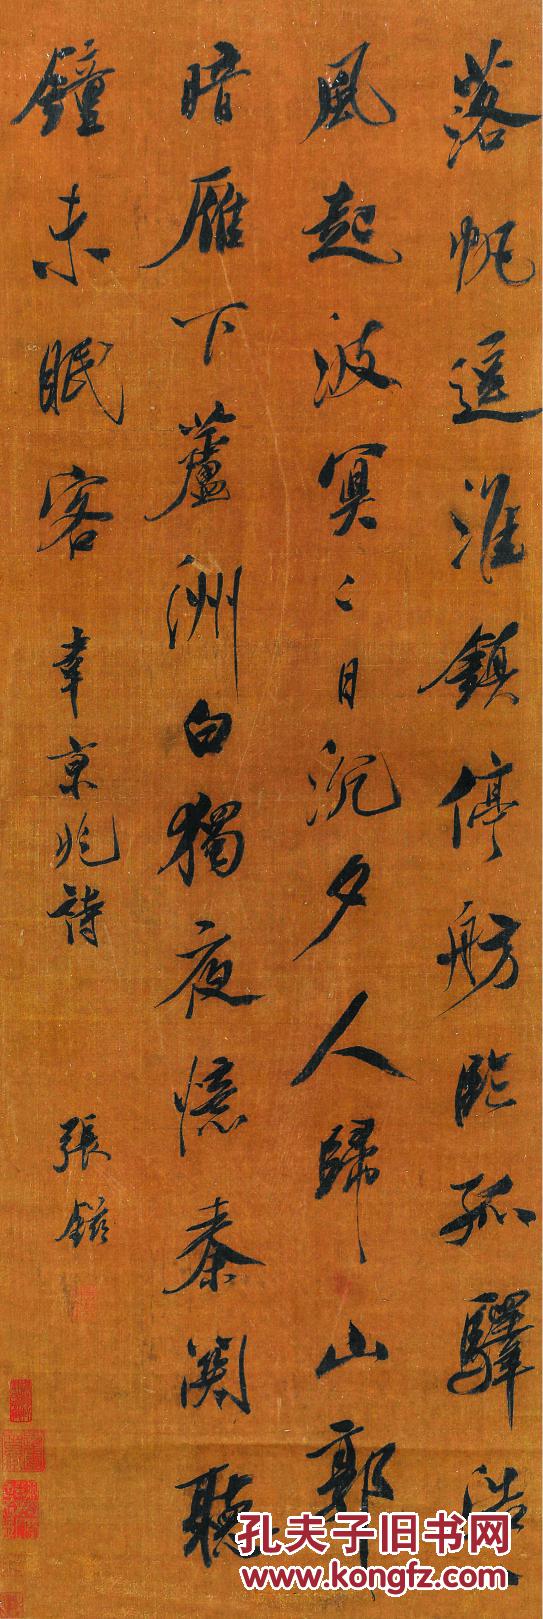 落帆逗淮鎮停舫臨孤驛浩
風起波冥〻日沉夕人歸山郭
暗雁下蘆洲白獨夜憶秦關聽
鐘未眠客 韋京兆詩
張鎡
孔夫子旧书网
www.kongfz.com